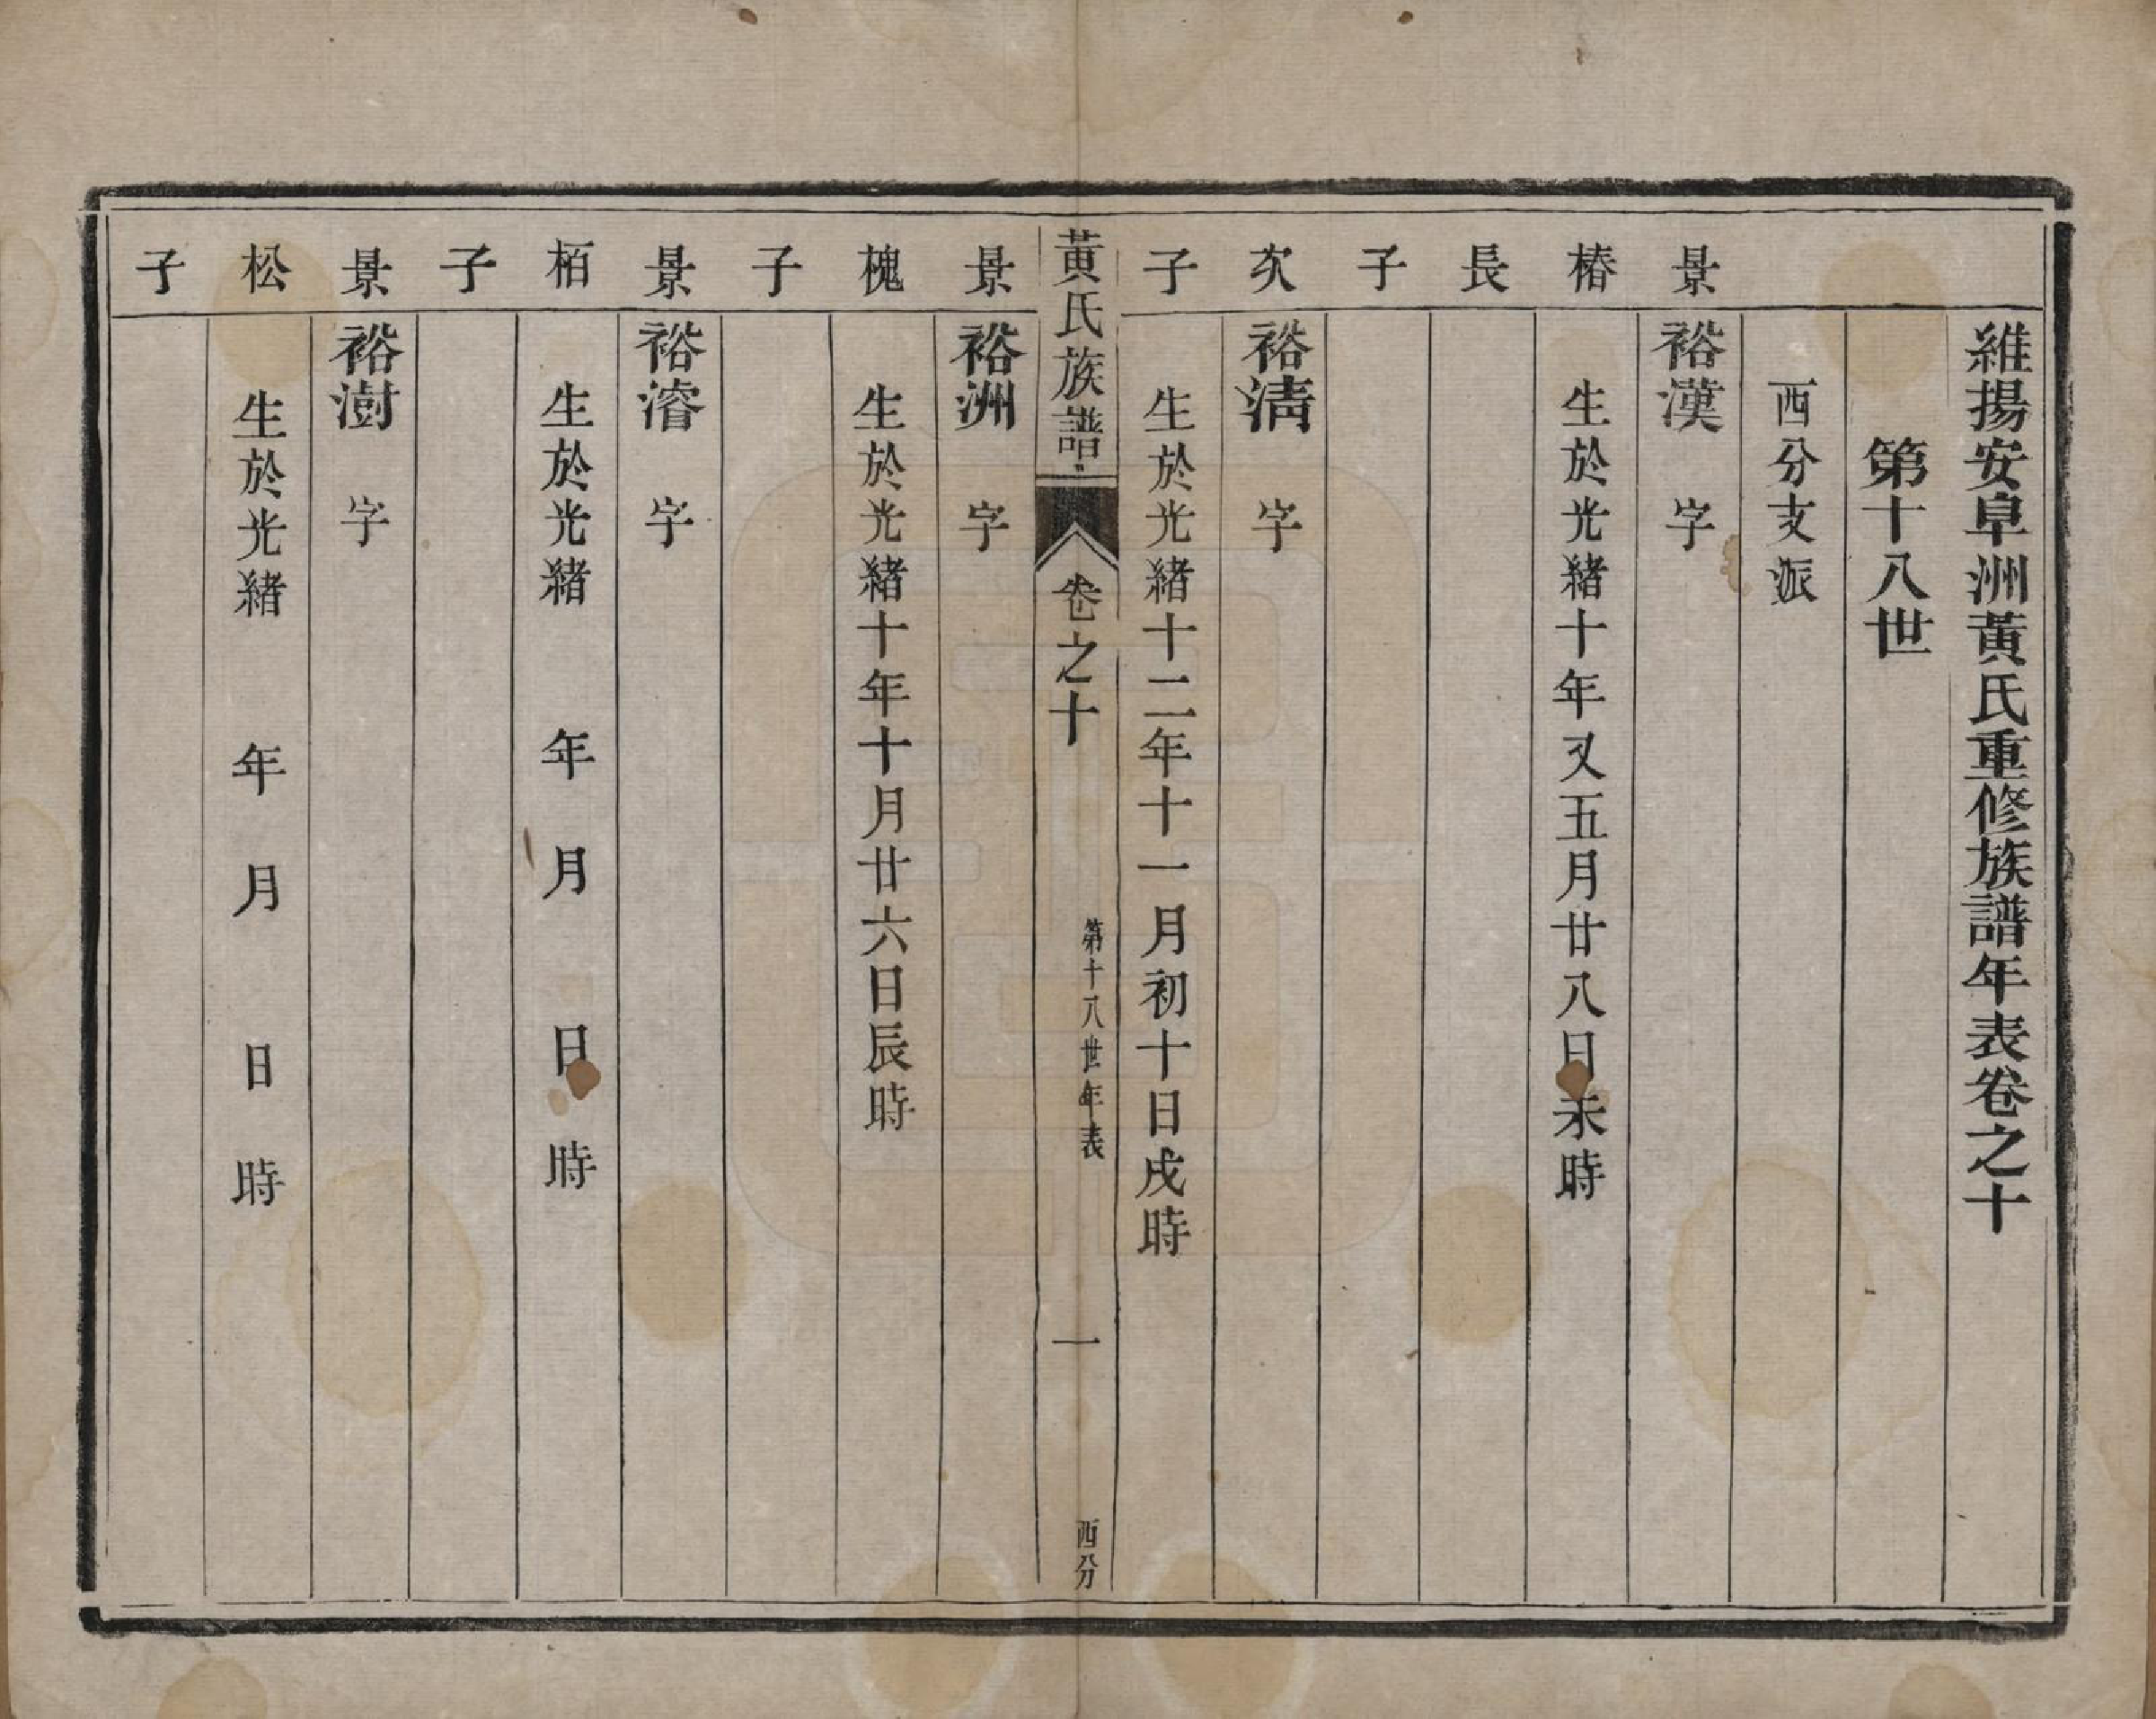 維揚安阜洲黃氏重修族譜年表卷之十
第十八世
西分支派
景椿長子
裕漢　字
生於光緒十年又五月廿八日未時
次子
裕淸　字
生於光緒十二年十一月初十日戌時
黃氏族譜
卷之十
第十八世年表
一
西分
景槐子
裕洲　字
生於光緒十年十月廿六日辰時
景栢子
裕濬　字
生於光緒　年　月　日　時
景松子
裕澍　字
生於光緒　年　月　日　時